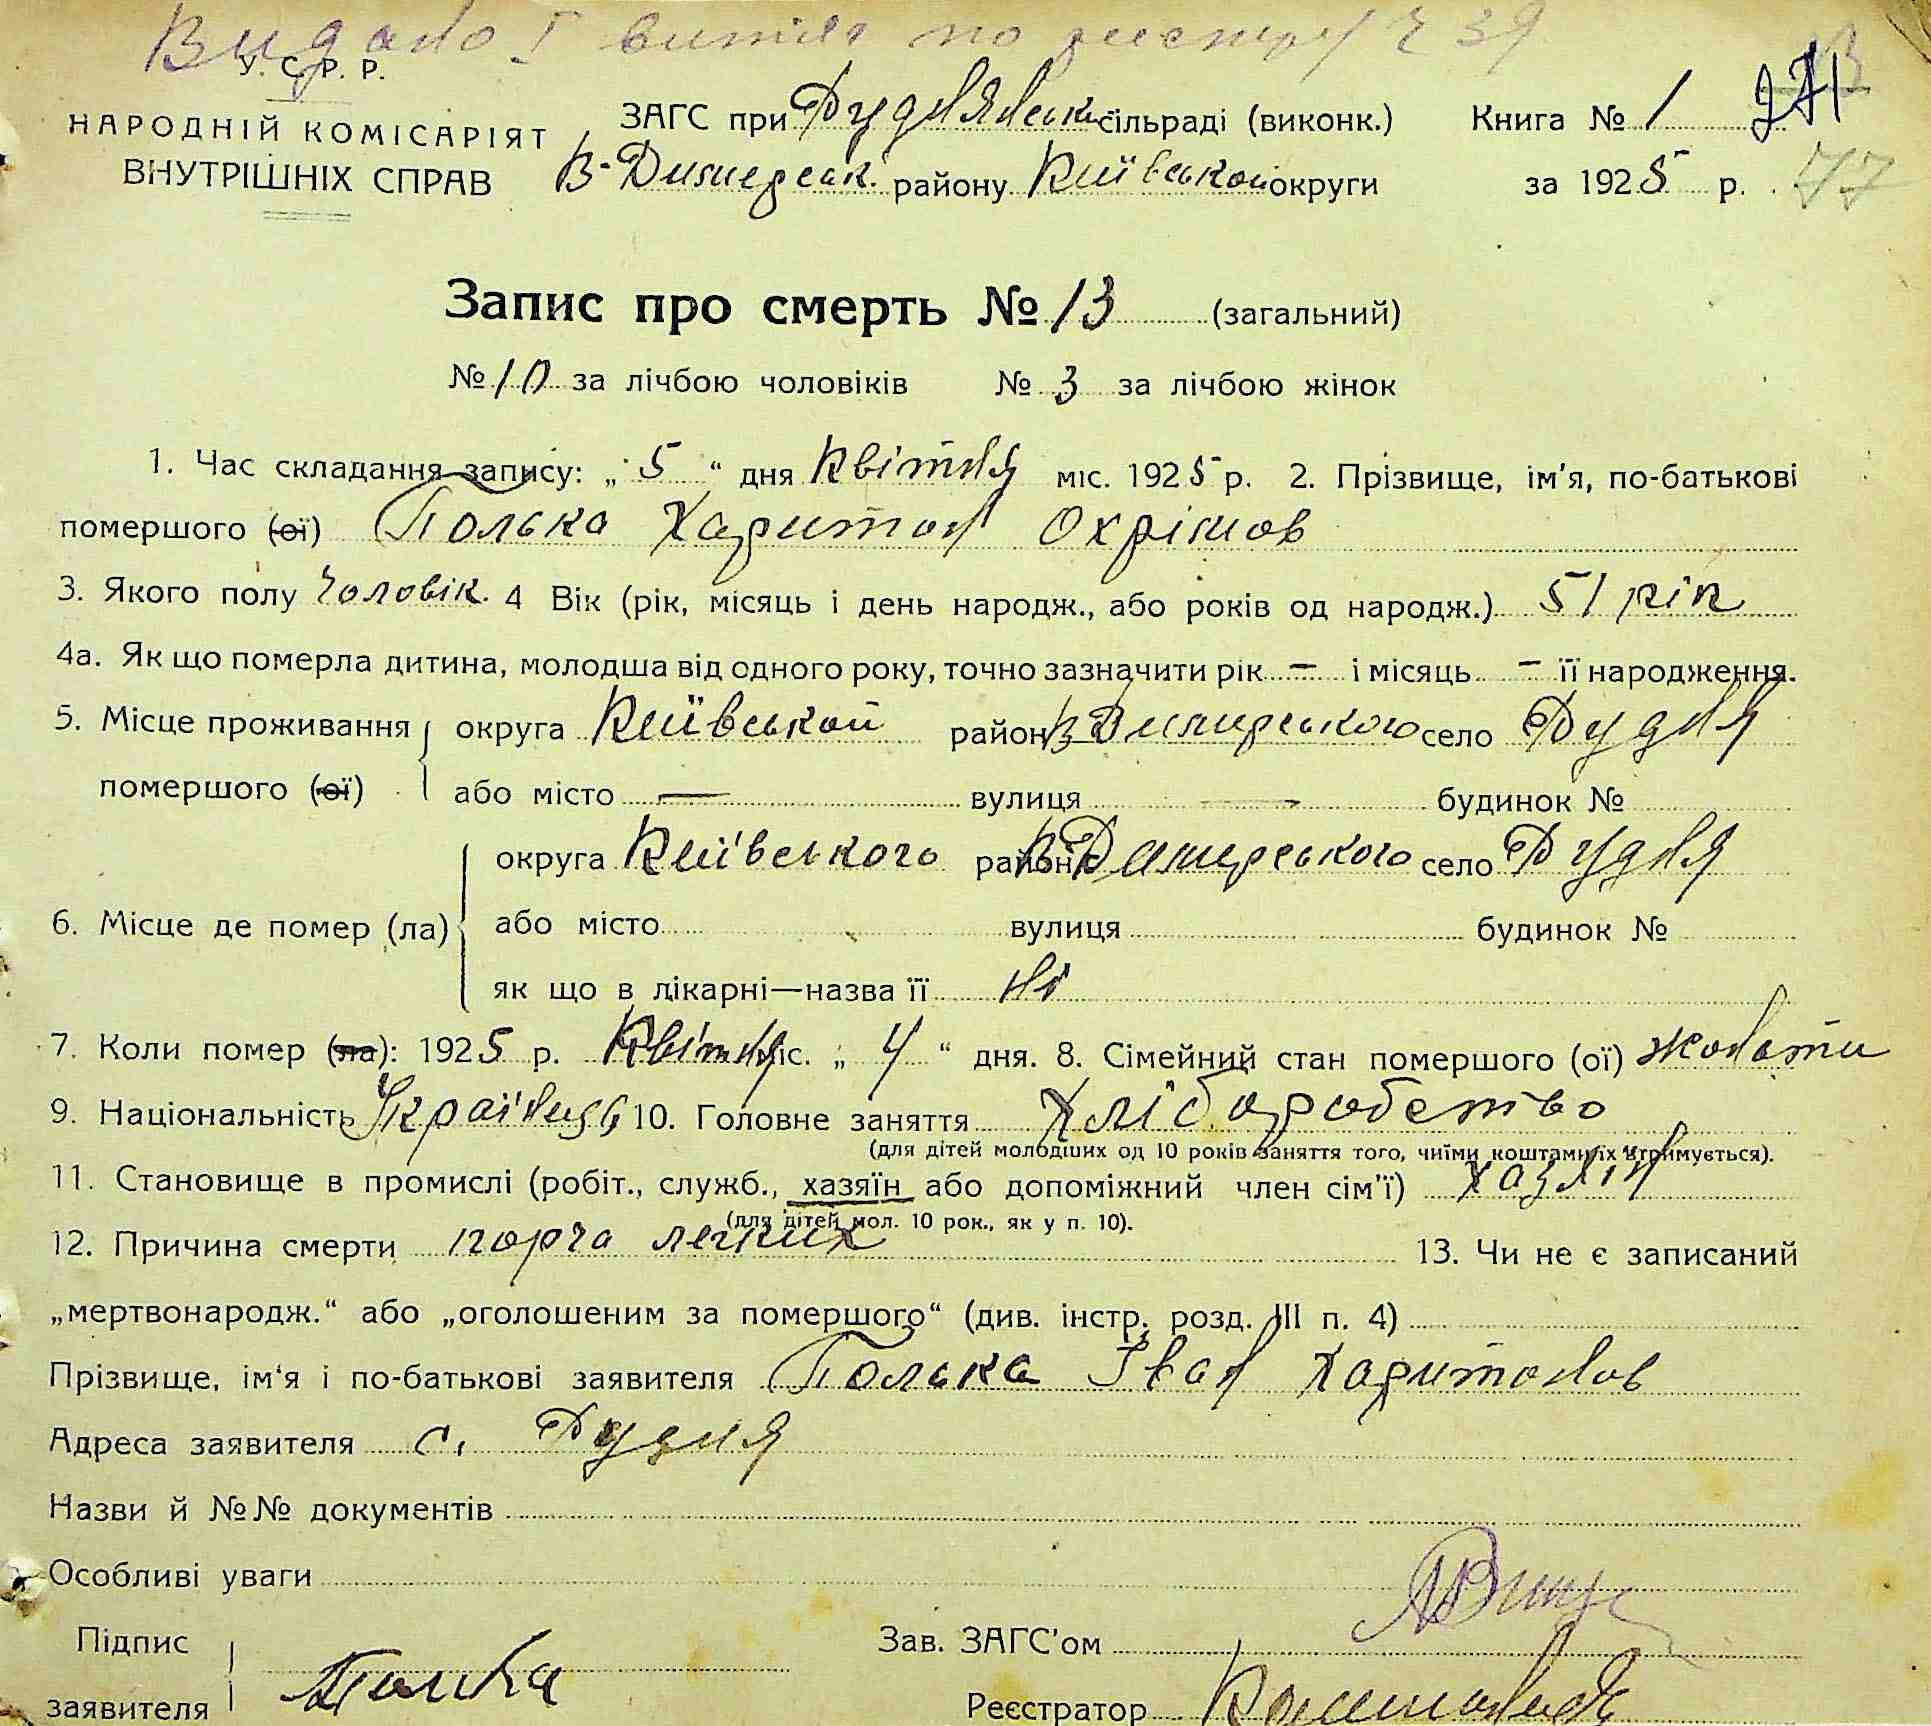 Видано 1 витяг по реєстру Ч 39
У. С. Р. Р.
НАРОДНІЙ КОМІСАРІЯТ
ВНУТРІШНІХ СПРАВ
ЗАГС при Руднянськ. сільраді (виконк.)
В-Димерськ. району Київськой округи
Книга № 1
271
за 1925 р.
77
Запис про смерть № 13 (загальний)
№ 10 за лічбою чоловіків № 3 за лічбою жінок
1. Час складання запису: „ 5 “ дня Квітня міс. 1925 р. 2. Прізвище, ім'я, по-батькові
помершого (ої) Полька Харитон Охрімов
3. Якого полу Чоловік. 4 Вік (рік, місяць і день народж., або років од народж.) 51 рік
4а. Як що померла дитина, молодша від одного року, точно зазначити рік – і місяць – її народження.
5. Місце проживання округа Київськой район В Димирського село Рудня
помершого (ої) або місто — вулиця — будинок №
округа Київського район В Димирського село Рудня
6. Місце де помер (ла) або місто вулиця будинок №
як що в лікарні—назва її ні
7. Коли помер (ла): 1925 р. Квітня міс. „ 4 “ дня. 8. Сімейний стан помершого (ої) жонати
9. Національність Українец 10. Головне заняття Хліборобство
(для дітей молодших од 10 років заняття того, чиїми коштами їх утримується).
11. Становище в промислі (робіт., служб., хазяїн або допоміжний член сім'ї) хазяін
(для дітей мол. 10 рок., як у п. 10).
12. Причина смерти порча легких 13. Чи не є записаний
„мертвонародж.“ або „оголошеним за помершого“ (див. інстр. розд. III п. 4)
Прізвище, ім'я і по-батькові заявителя Полька Іван Харитонов
Адреса заявителя с. Рудня
Назви й №№ документів
Особливі уваги
Підпис
заявителя Полька
Зав. ЗАГС'ом
Реєстратор